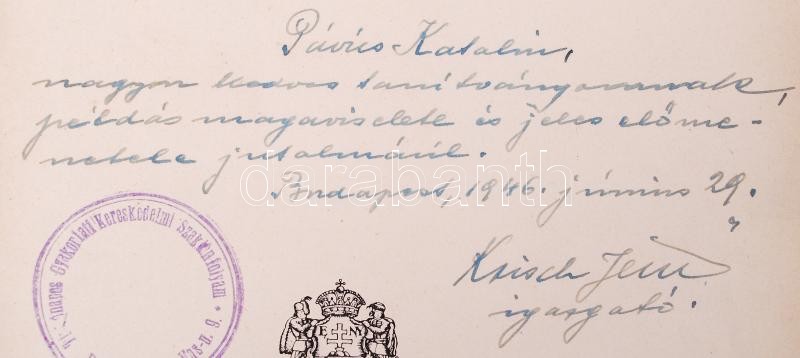 Pávics Katalin,
nagyon kedves tanítványomnak,
példás magaviselete és jeles előme-
netele jutalmául.
Budapest, 1946. június 29.
Krisch Jenő
igazgató.
Gyakorlati Kereskedelmi Szaktanfolyam
E NY
darabanth